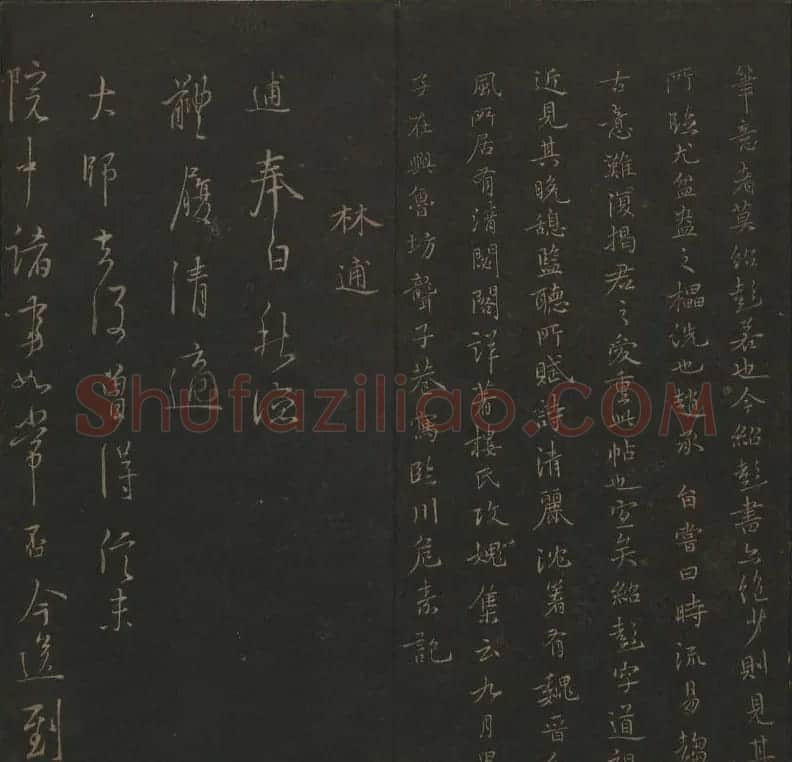 筆意者莫紹彭若也今紹彭書亦絕少則見其
所臨尤益盎之櫑洗也趙承旨嘗曰時流易趨
古意難復楊君之愛重此帖也宜矣紹彭字道祖
近見其晚憩監聽所賦詩清麗沈著有魏晉
風所居有清閟閣詳著樓氏攻媿集云九月
子在興魯坊聲子巷寓臨川危素記
林逋
逋奉白秋涼
體履清適
大師去後曾得信未
院中諸事如常否今送到
Shufaziliao.COM